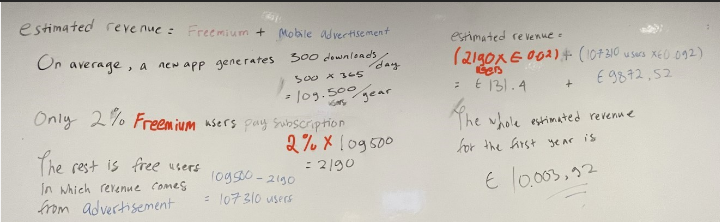 estimated revenue = Freemium + Mobile advertisement
On average, a new app generates 300 downloads/day
300 x 365
= 109.500/year
users
Only 2% Freemium users pay subscription
2% x 109500
= 2190
The rest is free users
In which revenue comes
from advertisement
109500 - 2190
= 107310 users
estimated revenue =
(2190 x € 0.02) + (107310 users x € 0.092)
users
= € 131.4 + € 9872,52
The whole estimated revenue
for the first year is
€ 10.003,92